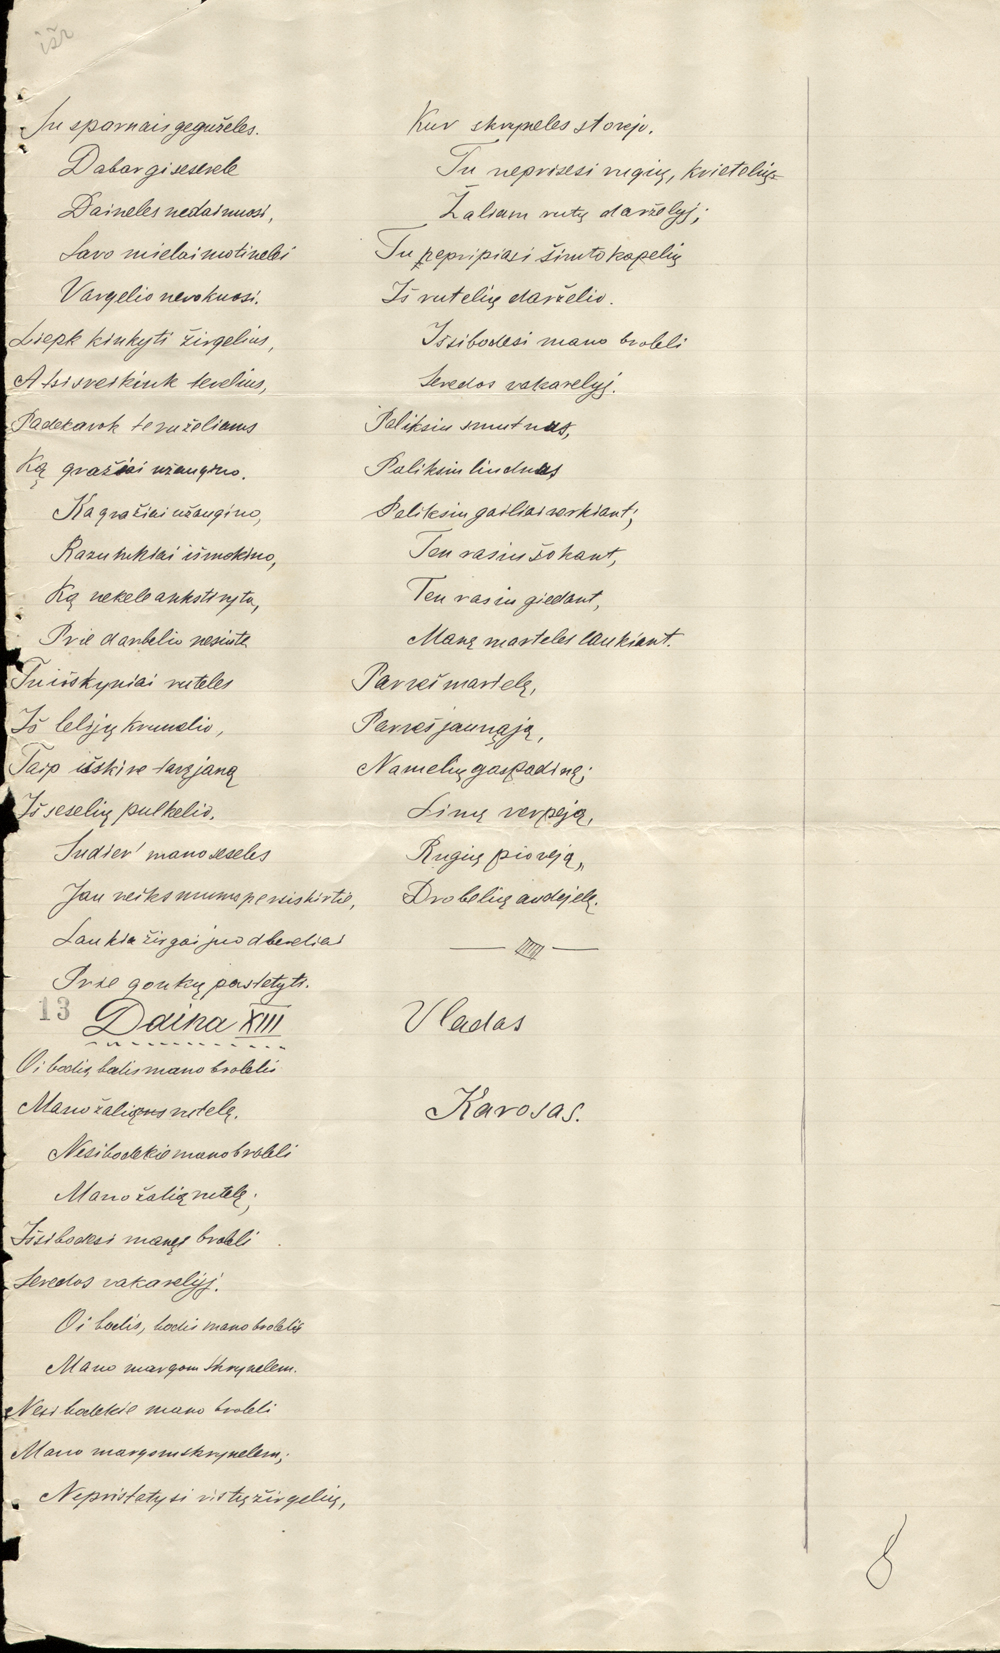 išr
Su sparnais geguželes.
Dabar gi seserele
Daineles nedainuosi,
Savo mielai motinelei
Vargelio nevokuosi.
Liepk kinkyti žirgelius,
Atsisveikink tevelius,
Padekavok tevuželiams
Ką gražiai užaugino.
Ka gražiai užaugino,
Razumkiai išmokino,
Ką nekele ankstiryta,
Prie darbelio nesiute
Tu iiškyniai ruteles
Iš lelijų krumelio,
Taip išskire tavę janą
Iš seselių pulkelio.
Sudiev! mano seseles
Jau reiks mums persiskirtie,
Laukia žirgai juodbereliai
Prie gonkų pastatyti.
13 Daina XIII
Oi bodis bodis mano brolelis
Mano žalią rutelę.
Nesibodekie mano broleli
Mano žalią rutelę;
Išsibodesi manęs broleli
Seredos vakarelyj.
Oi bodis, bodis mano brolelis
Mano margom skrynelem.
Nesibodekie mano broleli
Mano margom skrynelem;
Nepristatysi vistų žirgelių,
Kur skryneles storejo.
Tu neprisesi rugių, kvietelių
Žaliam rutų darželyj;
Tu nepripiasi šimto kapelių
Iš rutelių darželio.
Išsibodesi mano broleli
Seredos vakarelyj.
Paliksiu smutnas,
Paliksiu liudnas
Paliksiu gailiai verkiant;
Ten rasiu šokant,
Ten rasiu giedant,
Manę marteles laukiant.
Parveš martelę,
Parveš jaunąją,
Namelių gaspadinę;
Linų verpeją,
Rugių pioveją,
Drobelių audejelę.
Vladas
Karosas.
8